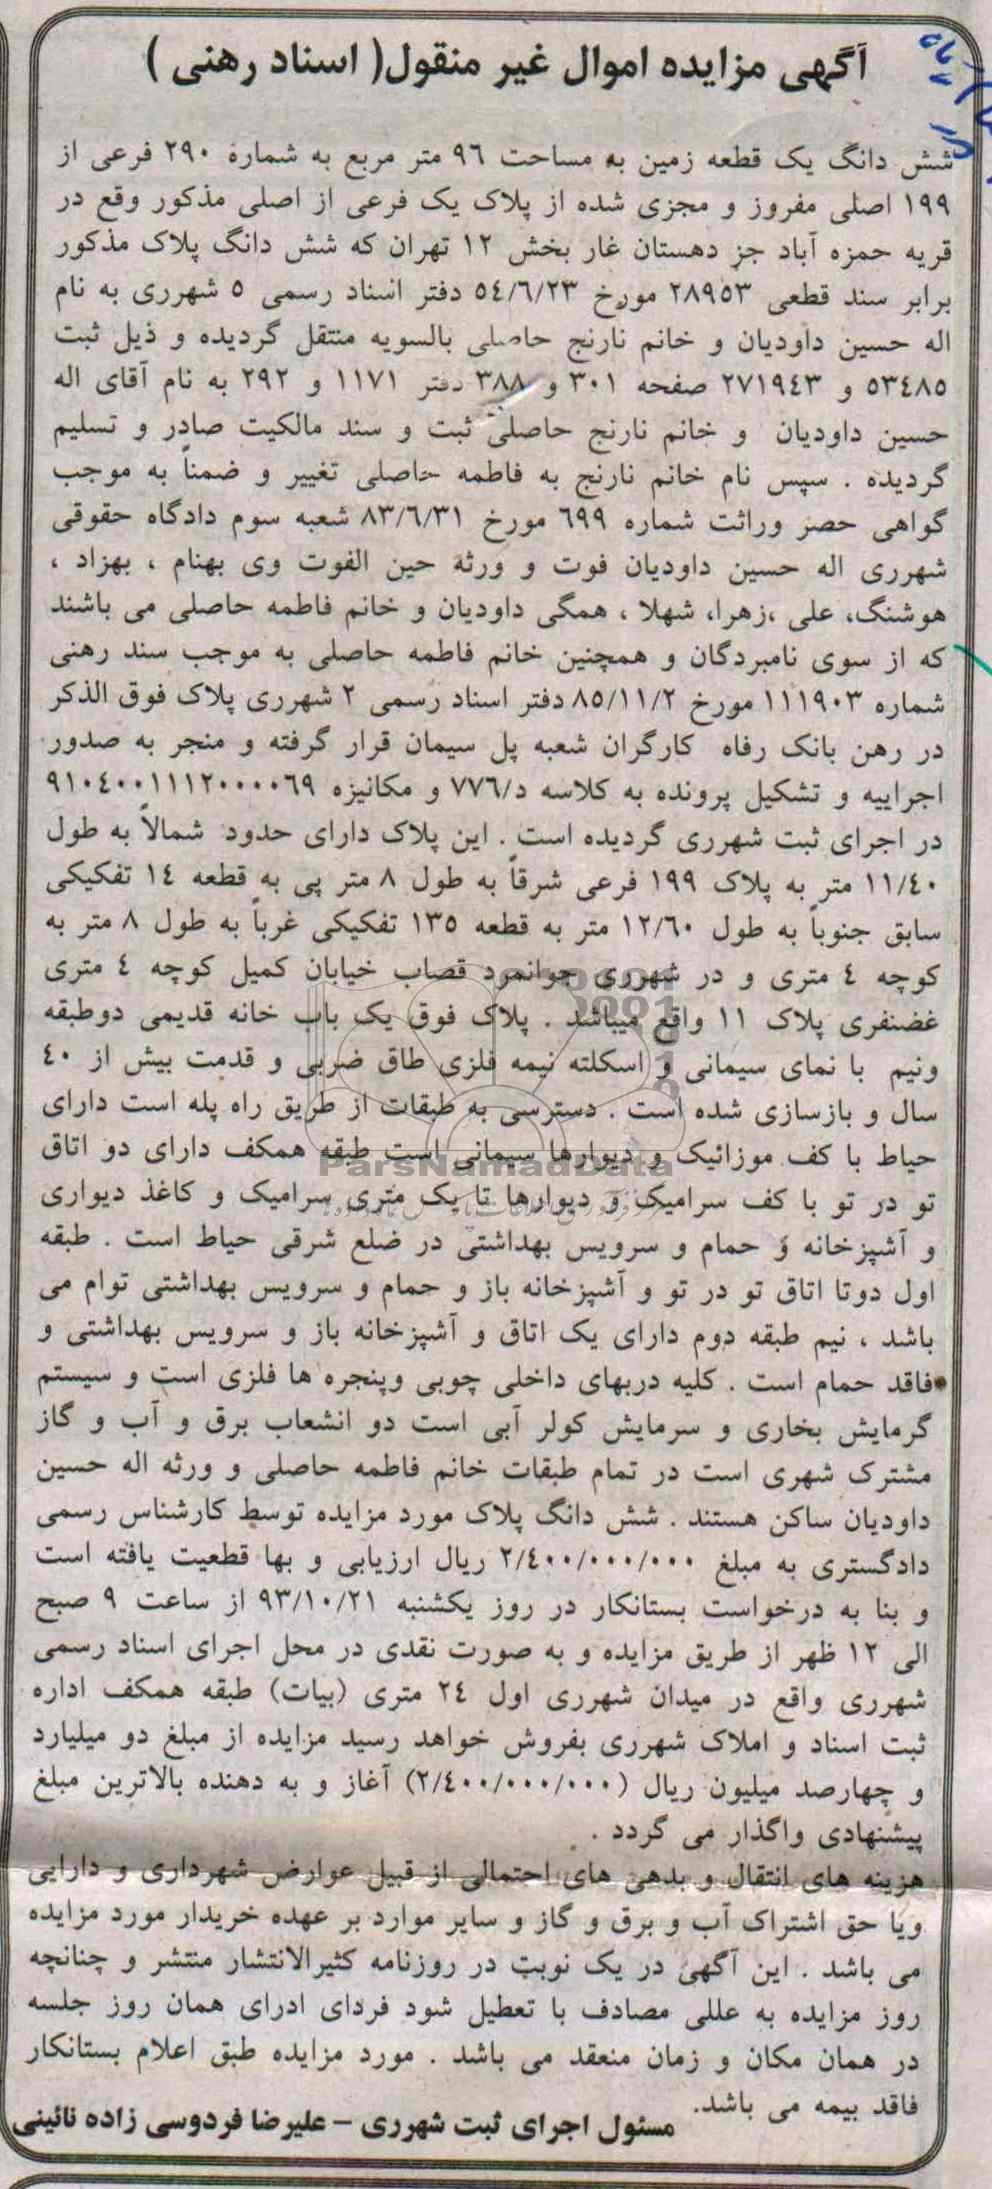 آگهی مزایده اموال غیر منقول( اسناد رهنی )
شش دانگ یک قطعه زمین به مساحت ۹۶ متر مربع به شماره ۲۹۰ فرعی از
۱۹۹ اصلی مفروز و مجزی شده از پلاک یک فرعی از اصلی مذکور وقع در
قریه حمزه آباد جز دهستان غار بخش ۱۲ تهران که شش دانگ پلاک مذکور
برابر سند قطعی ۲۸۹۵۳ مورخ ۵٤/٦/۲۳ دفتر اسناد رسمی ۵ شهرری به نام
اله حسین داودیان و خانم نارنج حاصلی بالسویه منتقل گردیده و ذیل ثبت
۵۳٤۸۵ و ۲۷۱۹٤۳ صفحه ۳۰۱ و ۳۸۸ دفتر ۱۱۷۱ و ۲۹۲ به نام آقای اله
حسین داودیان و خانم نارنج حاصلی ثبت و سند مالکیت صادر و تسلیم
گردیده . سپس نام خانم نارنج به فاطمه حاصلی تغییر و ضمناً به موجب
گواهی حصر وراثت شماره ٦۹۹ مورخ ۸۳/٦/۳۱ شعبه سوم دادگاه حقوقی
شهرری اله حسین داودیان فوت و ورثه حین الفوت وی بهنام ، بهزاد ،
هوشنگ، علی ،زهرا، شهلا ، همگی داودیان و خانم فاطمه حاصلی می باشند
که از سوی نامبردگان و همچنین خانم فاطمه حاصلی به موجب سند رهنی
شماره ۱۱۱۹۰۳ مورخ ۸۵/۱۱/۲ دفتر اسناد رسمی ۲ شهرری پلاک فوق الذکر
در رهن بانک رفاه کارگران شعبه پل سیمان قرار گرفته و منجر به صدور
اجراییه و تشکیل پرونده به کلاسه د/۷۷٦ و مکانیزه ۹۱۰٤۰۰۱۱۱۲۰۰۰۰٦۹
در اجرای ثبت شهرری گردیده است . این پلاک دارای حدود شمالاً به طول
۱۱/٤۰ متر به پلاک ۱۹۹ فرعی شرقاً به طول ۸ متر پی به قطعه ۱٤ تفکیکی
سابق جنوباً به طول ۱۲/٦۰ متر به قطعه ۱۳۵ تفکیکی غرباً به طول ۸ متر به
کوچه ٤ متری و در شهرری جوانمرد قصاب خیابان کمیل کوچه ٤ متری
غضنفری پلاک ۱۱ واقع میباشد . پلاک فوق یک باب خانه قدیمی دوطبقه
ونیم با نمای سیمانی و اسکلته نیمه فلزی طاق ضربی و قدمت بیش از ٤۰
سال و بازسازی شده است . دسترسی به طبقات از طریق راه پله است دارای
حیاط با کف موزائیک و دیوارها سیمانی است طبقه همکف دارای دو اتاق
ParsNamadData
تو در تو با کف سرامیک و دیوارها تا یک متری سرامیک و کاغذ دیواری
و آشپزخانه و حمام و سرویس بهداشتی در ضلع شرقی حیاط است . طبقه
اول دوتا اتاق تو در تو و آشپزخانه باز و حمام و سرویس بهداشتی توام می
باشد ، نیم طبقه دوم دارای یک اتاق و آشپزخانه باز و سرویس بهداشتی و
فاقد حمام است . کلیه دربهای داخلی چوبی وپنجره ها فلزی است و سیستم
گرمایش بخاری و سرمایش کولر آبی است دو انشعاب برق و آب و گاز
مشترک شهری است در تمام طبقات خانم فاطمه حاصلی و ورثه اله حسین
داودیان ساکن هستند . شش دانگ پلاک مورد مزایده توسط کارشناس رسمی
دادگستری به مبلغ ۲/٤۰۰/۰۰۰/۰۰۰ ریال ارزیابی و بها قطعیت یافته است
و بنا به درخواست بستانکار در روز یکشنبه ۹۳/۱۰/۲۱ از ساعت ۹ صبح
الی ۱۲ ظهر از طریق مزایده و به صورت نقدی در محل اجرای اسناد رسمی
شهرری واقع در میدان شهرری اول ۲٤ متری (بیات) طبقه همکف اداره
ثبت اسناد و املاک شهرری بفروش خواهد رسید مزایده از مبلغ دو میلیارد
و چهارصد میلیون ریال (۲/٤۰۰/۰۰۰/۰۰۰) آغاز و به دهنده بالاترین مبلغ
پیشنهادی واگذار می گردد .
هزینه های انتقال و بدهی های احتمالی از قبیل عوارض شهرداری و دارایی
ویا حق اشتراک آب و برق و گاز و سایر موارد بر عهده خریدار مورد مزایده
می باشد . این آگهی در یک نوبت در روزنامه کثیرالانتشار منتشر و چنانچه
روز مزایده به عللی مصادف با تعطیل شود فردای ادرای همان روز جلسه
در همان مکان و زمان منعقد می باشد . مورد مزایده طبق اعلام بستانکار
فاقد بیمه می باشد.
مسئول اجرای ثبت شهرری – علیرضا فردوسی زاده نائینی